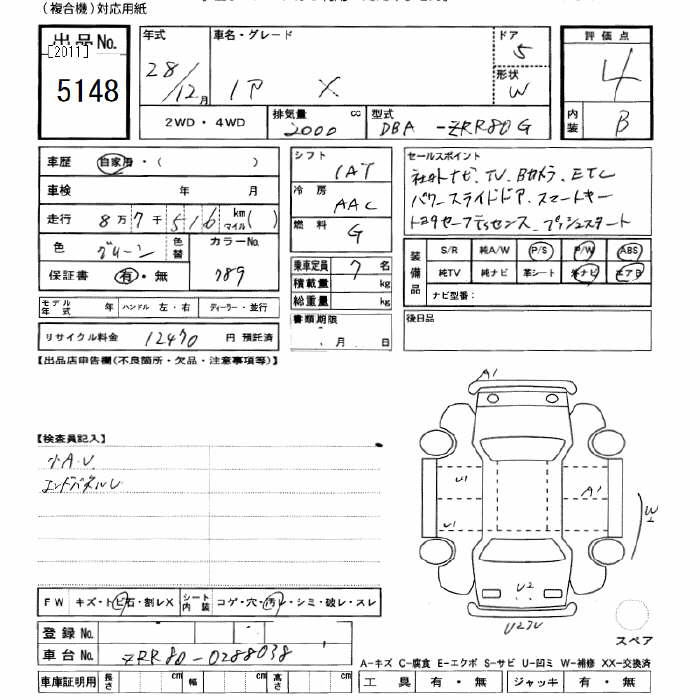 (複合機)対応用紙
出品No.
[2011]
5148
年式
28/12月
車名・グレード
X
ドア
5
形状
W
評価点
4
内装
B
2WD・4WD
排気量
2000 cc
型式
DBA-ZRR80G
車歴
自家用・( )
車検 年 月
走行
8万7千516 km マイル( )
色
グリーン
色替
カラーNo.
789
保証書
有・無
モデル年式 年
ハンドル 左・右
ディーラー・並行
リサイクル料金 12470 円 預託済
シフト
IAT
冷房
AAC
燃料
G
乗車定員 7 名
積載量 kg
総重量 kg
書類期限
月 日
セールスポイント
社外ナビ、TV、Bカメラ、ETC
パワースライドドア、スマートキー
トヨタセーフティセンス、プッシュスタート
装備品
S/R 純A/W P/S P/W ABS
純TV 純ナビ 革シート 社ナビ エアB
ナビ型番:
後日品
【出品店申告欄(不良箇所・欠品・注意事項等)】
【検査員記入】
小A.U.
エンドパネルU
A1
U1
A1
U1
W2
U2
U2 3U
スペア
FW
キズ・トビ石・割レX
シート内装
コゲ・穴・汚レ・シミ・破レ・スレ
登録No.
車台No. ZRR80-0288038
車庫証明用
長さ cm
幅 cm
高さ cm
A-キズ C-腐食 E-エクボ S-サビ U-凹ミ W-補修 XX-交換済
工具 有・無
ジャッキ 有・無